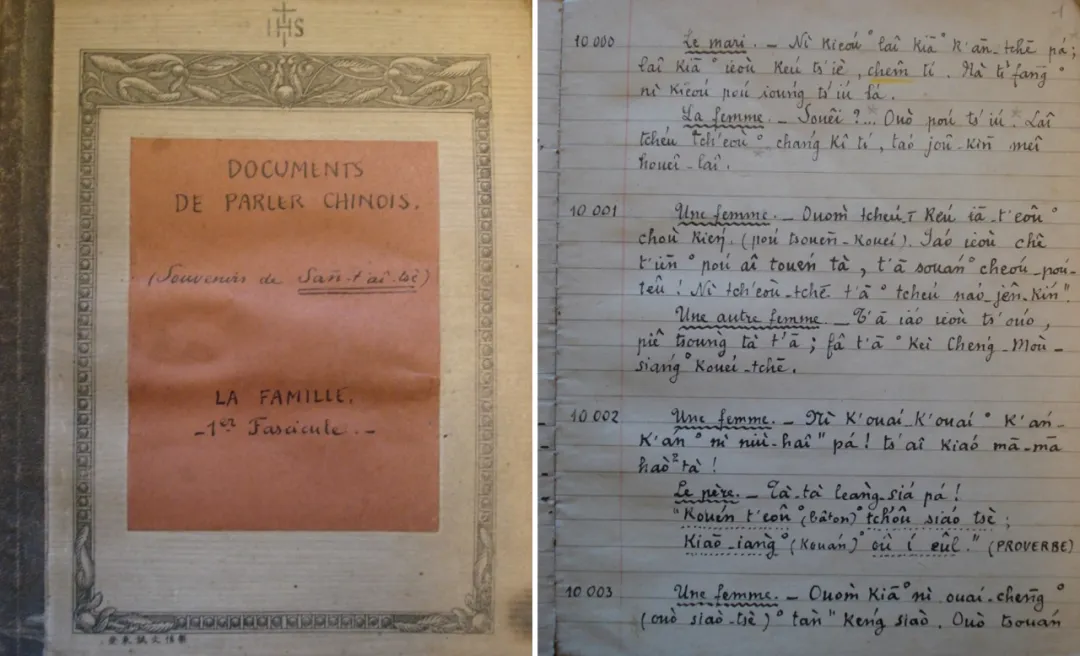 IHS
DOCUMENTS
DE PARLER CHINOIS.
(Souvenirs de Sañ-t'aî-tsè)
LA FAMILLE.
-1er Fascicule.-
1
10 000 Le mari. — Nì Kieoú° laî Kiā° K'ān-tchē pá ;
laî Kiā° ieoù Keú ts'iè, chem̂ tí. Nà ts' fang̀°
nì Kieoú poú ioung ts'iú lá.
La femme. — Soueî ?... Ouò poú ts'iú. Laî
tcheú tch'eoù° chang Kî tí, taó joû-Kiñ meî
houeî-laî.
10 001 Une femme. — Ouom̀ tcheú-ī Keú iā-t'eoû°
choù Kień. (poú tsoueñ-Koueí). Iaó ieoù chê
t'iñ° poú aî toueń tà, t'ā souań° cheoú-poú-
teû ! Nì tch'eoù-tchē t'ā° tcheú naó-jên-Kiñ".
Une autre femme. — T'ā iáo ieoù ts'ouó,
piê tsoung̀ tà t'ā ; fâ t'ā° Keì Cheng-Moù-
siang° Koueí-tchē.
10 002 Une femme. — Nì K'ouaí K'ouaí° K'áń-
K'áń° nì niù-haî" pá ! ts'aî Kiaó mā-mā
haò² tà !
Le père. — Tà-tà leang̀-siá pá !
"Kouén t'eoû° (bâton) tch'oû siaó tsè ;
Kiaō-iang̀° (Kouań)° où í eûl." (PROVERBE)
10 003 Une femme. — Ouom̀ Kiā° nì ouaí-cheng°
(ouò siaò-tsè)° tàn" Keng siaò. Ouò tsouań